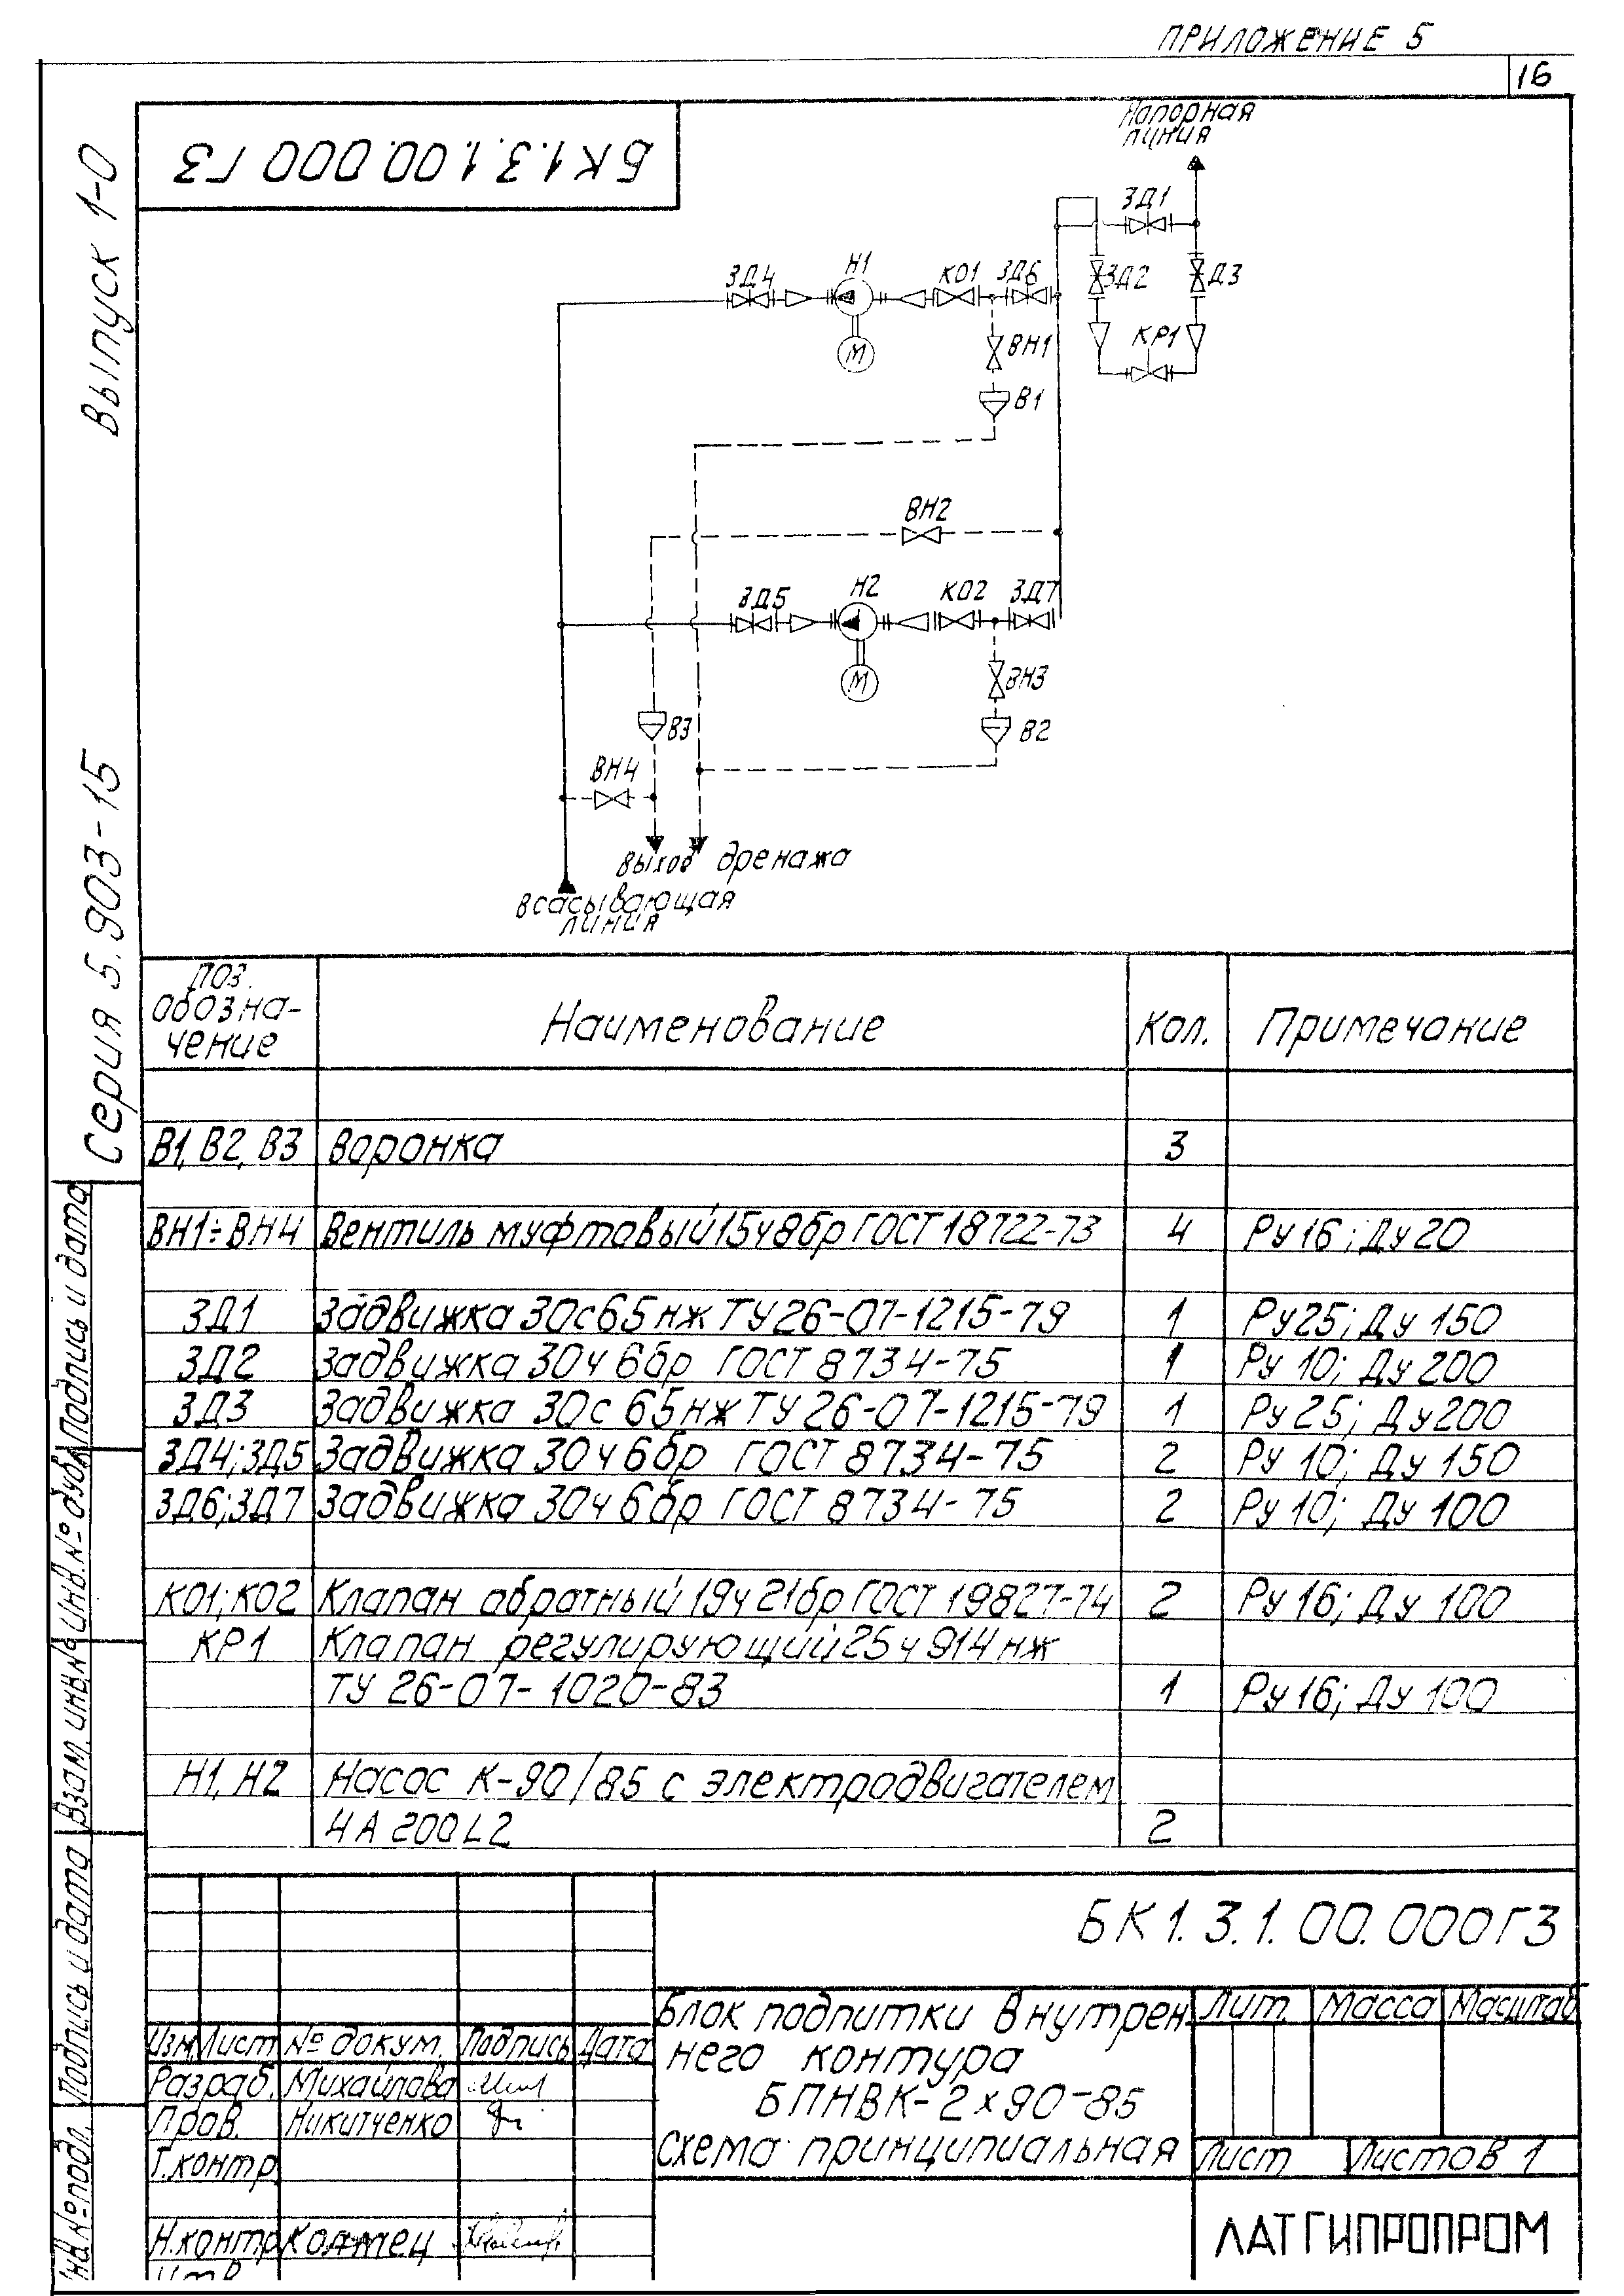 ПРИЛОЖЕНИЕ 5
16
БК1.3.1.00.000 Г3
Выпуск 1-0
Серия 5.903-15
Напорная
линия
ЗД1
ЗД4
Н1
КО1
ЗД6
ЗД2
ЗД3
М
ВН1
КР1
В1
ВН2
ЗД5
Н2
КО2
ЗД7
М
ВН3
В3
В2
ВН4
Выход дренажа
Всасывающая
линия
Поз. обозна-чение
Наименование
Кол.
Примечание
В1, В2, В3 Воронка 3
ВН1÷ВН4 Вентиль муфтовый 15ч8бр ГОСТ 18722-73 4 Ру 16; Ду 20
ЗД1 Задвижка 30с65нж ТУ26-07-1215-79 1 Ру25; Ду 150
ЗД2 Задвижка 30ч6бр ГОСТ 8734-75 1 Ру 10; Ду 200
ЗД3 Задвижка 30с65нж ТУ26-07-1215-79 1 Ру 25; Ду200
ЗД4;ЗД5 Задвижка 30ч6бр ГОСТ 8734-75 2 Ру 10; Ду 150
ЗД6;ЗД7 Задвижка 30ч6бр ГОСТ 8734-75 2 Ру 10; Ду 100
КО1;КО2 Клапан обратный 19ч21бр ГОСТ 19827-74 2 Ру 16; Ду 100
КР1 Клапан регулирующий 25ч914нж
ТУ 26-07-1020-83 1 Ру 16; Ду 100
Н1, Н2 Насос К-90/85 с электродвигателем
4А 200L2 2
БК1.3.1.00.000Г3
Блок подпитки внутрен-
него контура
БПНВК-2х90-85
Схема принципиальная
Лит. Масса Масштаб
Лист Листов 1
ЛАТГИПРОПРОМ
Изм. Лист № докум. Подпись Дата
Разраб. Михайлова
Пров. Никитченко
Т.контр.
Н.контр.
Подпись и дата
Инв.№ дубл.
Взам. инв.№
Подпись и дата
Инв.№ подл.